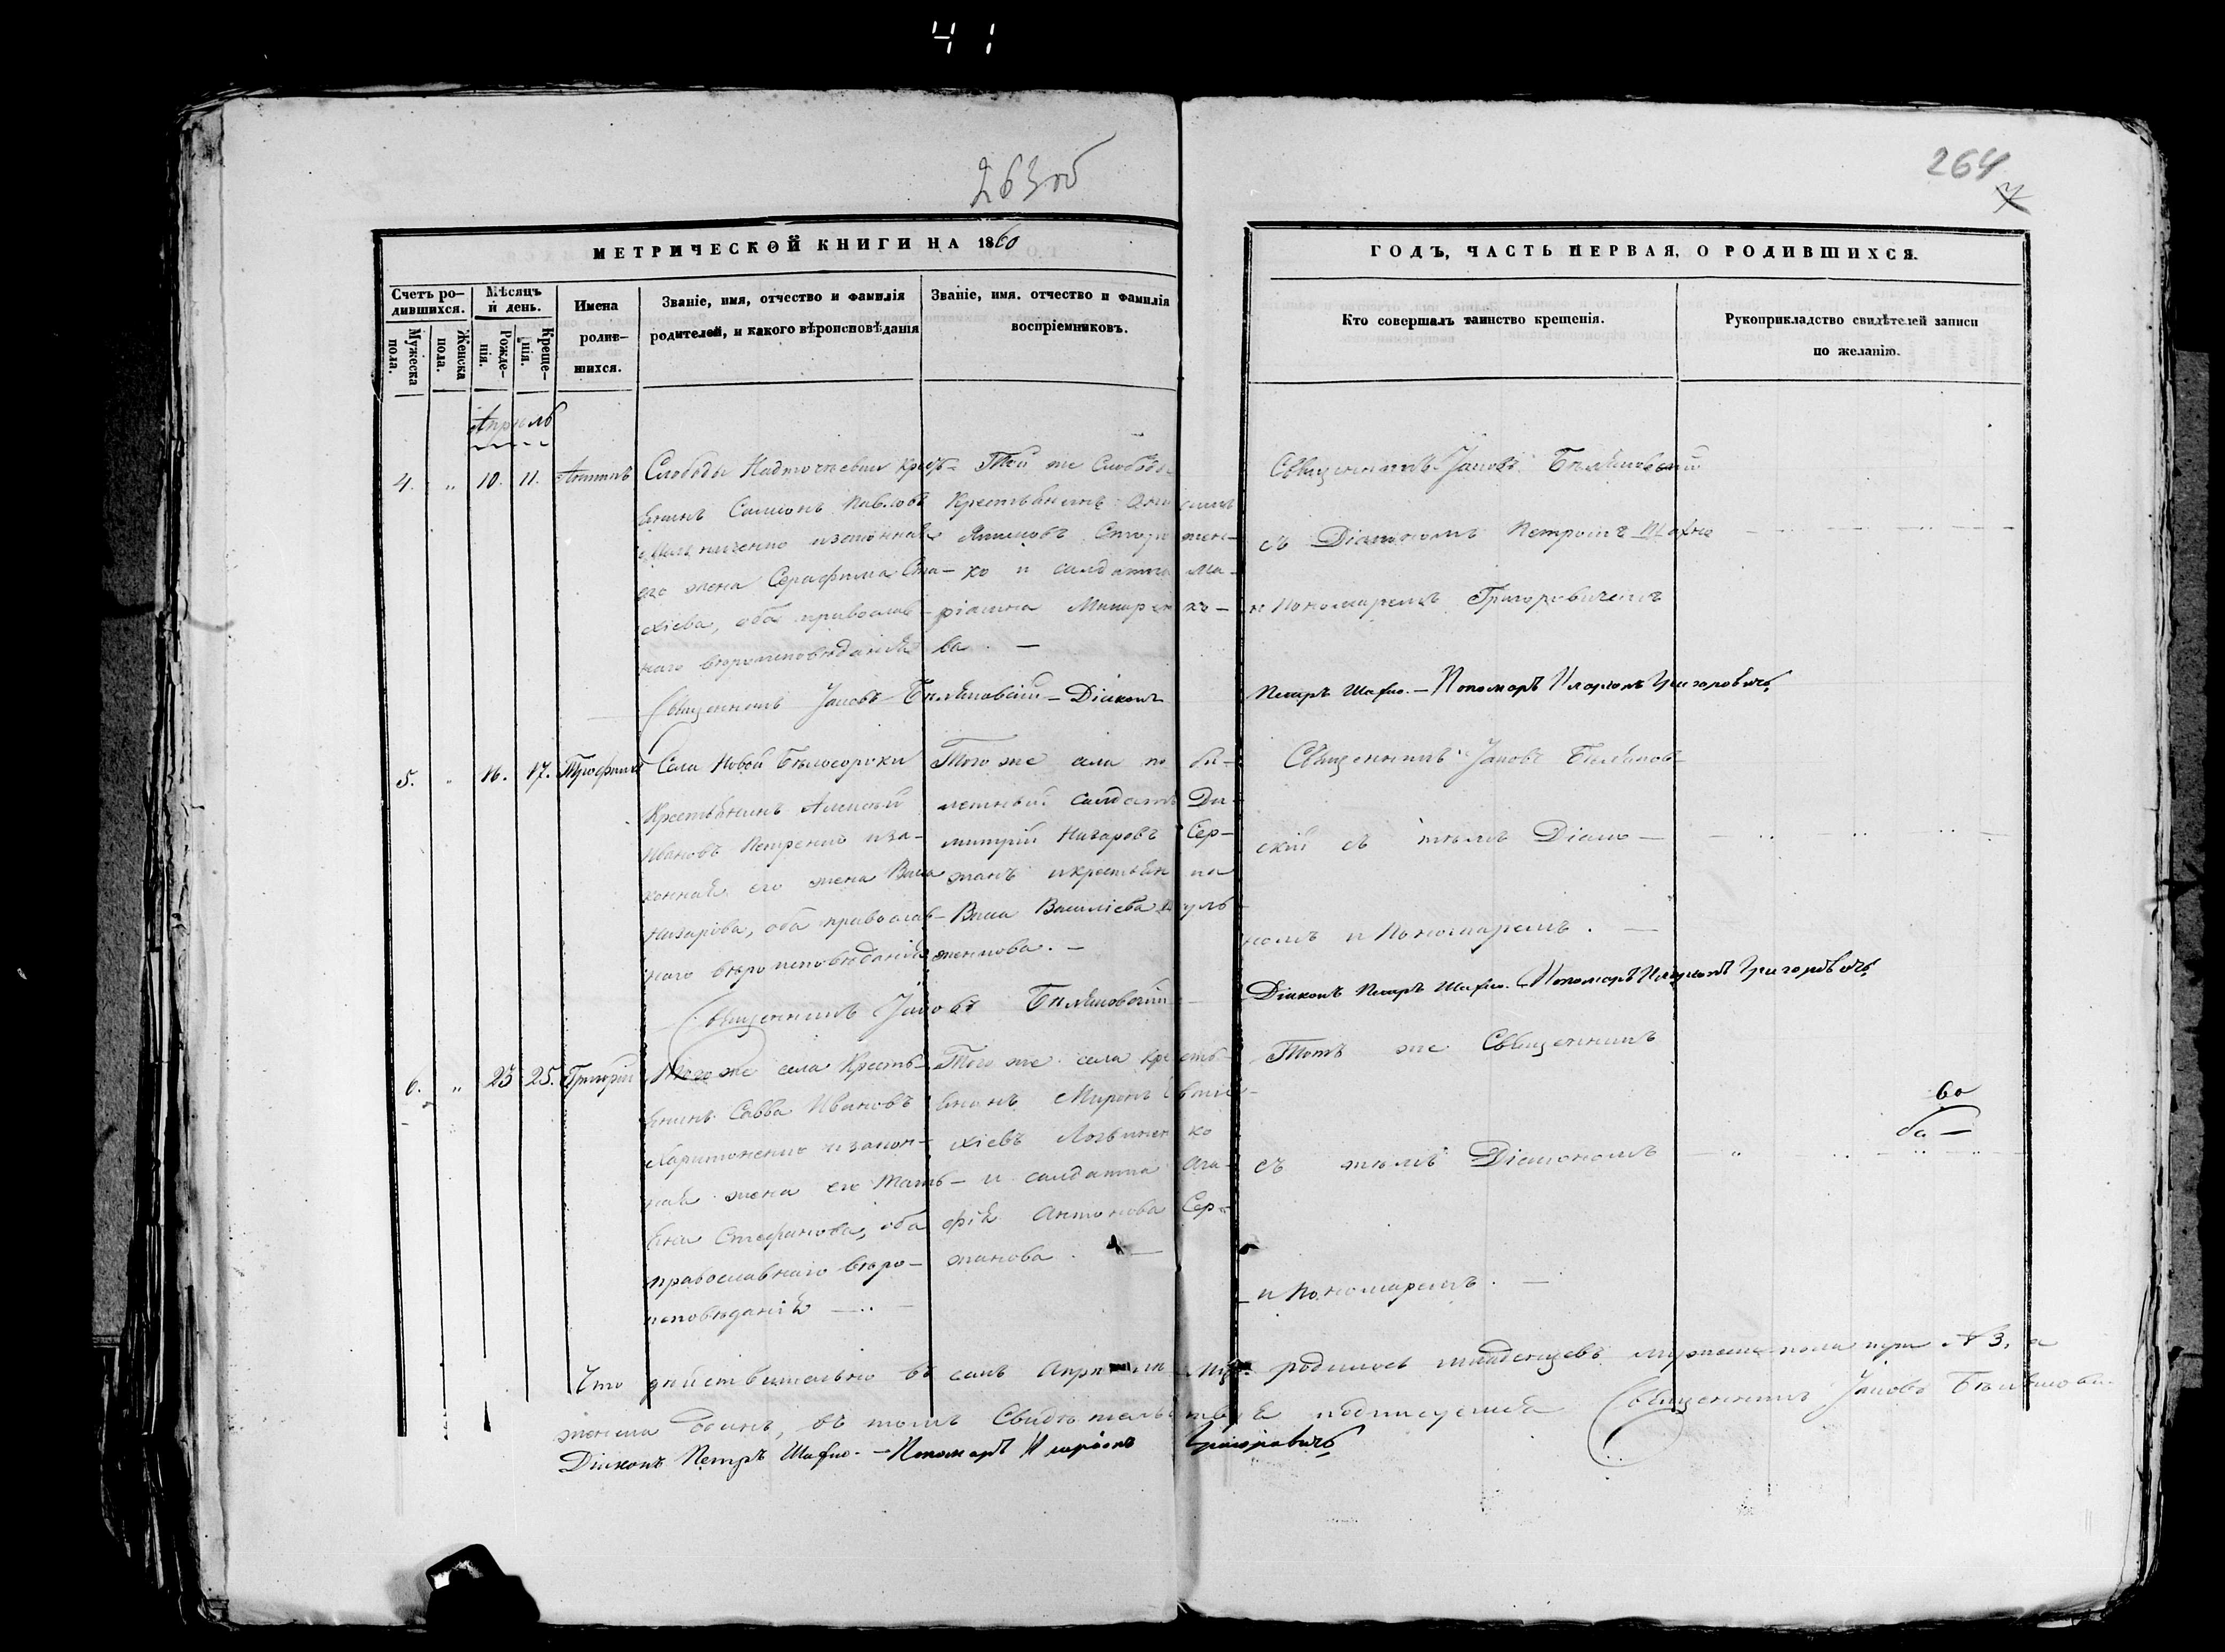 41
263об
264
7
МЕТРИЧЕСКОЙ КНИГИ НА 1860
ГОДЪ, ЧАСТЬ ПЕРВАЯ, О РОДИВШИХСЯ.
Счетъ ро-
дившихся.
Мужеска
пола.
Женска
пола.
Мѣсяцъ
и день.
Рожде-
нія.
Креще-
нія.
Имена
родив-
шихся.
Званіе, имя, отчество и фамилія
родителей, и какого вѣроисповѣданія
Званіе, имя. отчество и фамилія
воспріемниковъ.
Кто совершалъ таинство крещенія.
Рукоприкладство свидѣтелей записи
по желанію.
Апрѣль
4. „ 10. 11. Антипъ
Слободы Надточаевки крѣс-
янинъ Самсонъ Павловъ
его жена Серафима
хіева, оба православ-
наго вѣроисповѣданія
Той же Слободы
Крестьянинъ
Якимовъ
ко и салдатка Ма-
ріамна Макаренко-
ва. —
Священникъ Іаковъ
съ Діакономъ Петромъ Шафко
и Пономаремъ Григоровичемъ
Священникъ Іаковъ — Діаконъ Петръ Шафко. — Пономарь Иларіонъ Григоровичъ
5. „ 16. 17. Трофимъ
Села Новой Бѣлосороки
Крестьянинъ Алексѣй
Ивановъ Петренко и за-
конная его жена Васса
Назарова, оба православ-
наго вѣроисповѣданія
Того же села
билетный салдатъ Ди-
митрій Назаровъ Сер-
жанъ и крестьянка
Васса Василіева
женкова. —
Священникъ Іаковъ
скій съ тѣмъ Діако-
номъ и Пономаремъ. —
Священникъ Іаковъ
Діаконъ Петръ Шафко. Пономарь Иларіонъ Григоровичъ
6. „ 23 25. Григорій
Того же села Кресть-
янинъ Савва Ивановъ
Харитоненко и закон-
ная жена его Тать-
яна Стефанова, оба
православнаго вѣро-
исповѣданія
Того же села кресть-
янинъ Миронъ
хіевъ Логвиненко
и салдатка Ага-
фія Антонова Сер-
жанова. —
Тотъ же Священникъ
съ тѣмъ Діакономъ
и Пономаремъ. —
60
Что дѣйствительно въ семъ Апрѣлѣ родилось младенцевъ мужеска пола три № 3, а
женска одинъ, въ томъ Свидѣтельствуя подписуемся Священникъ Іаковъ
Діаконъ Петръ Шафко. — Пономарь Иларіонъ Григоровичъ